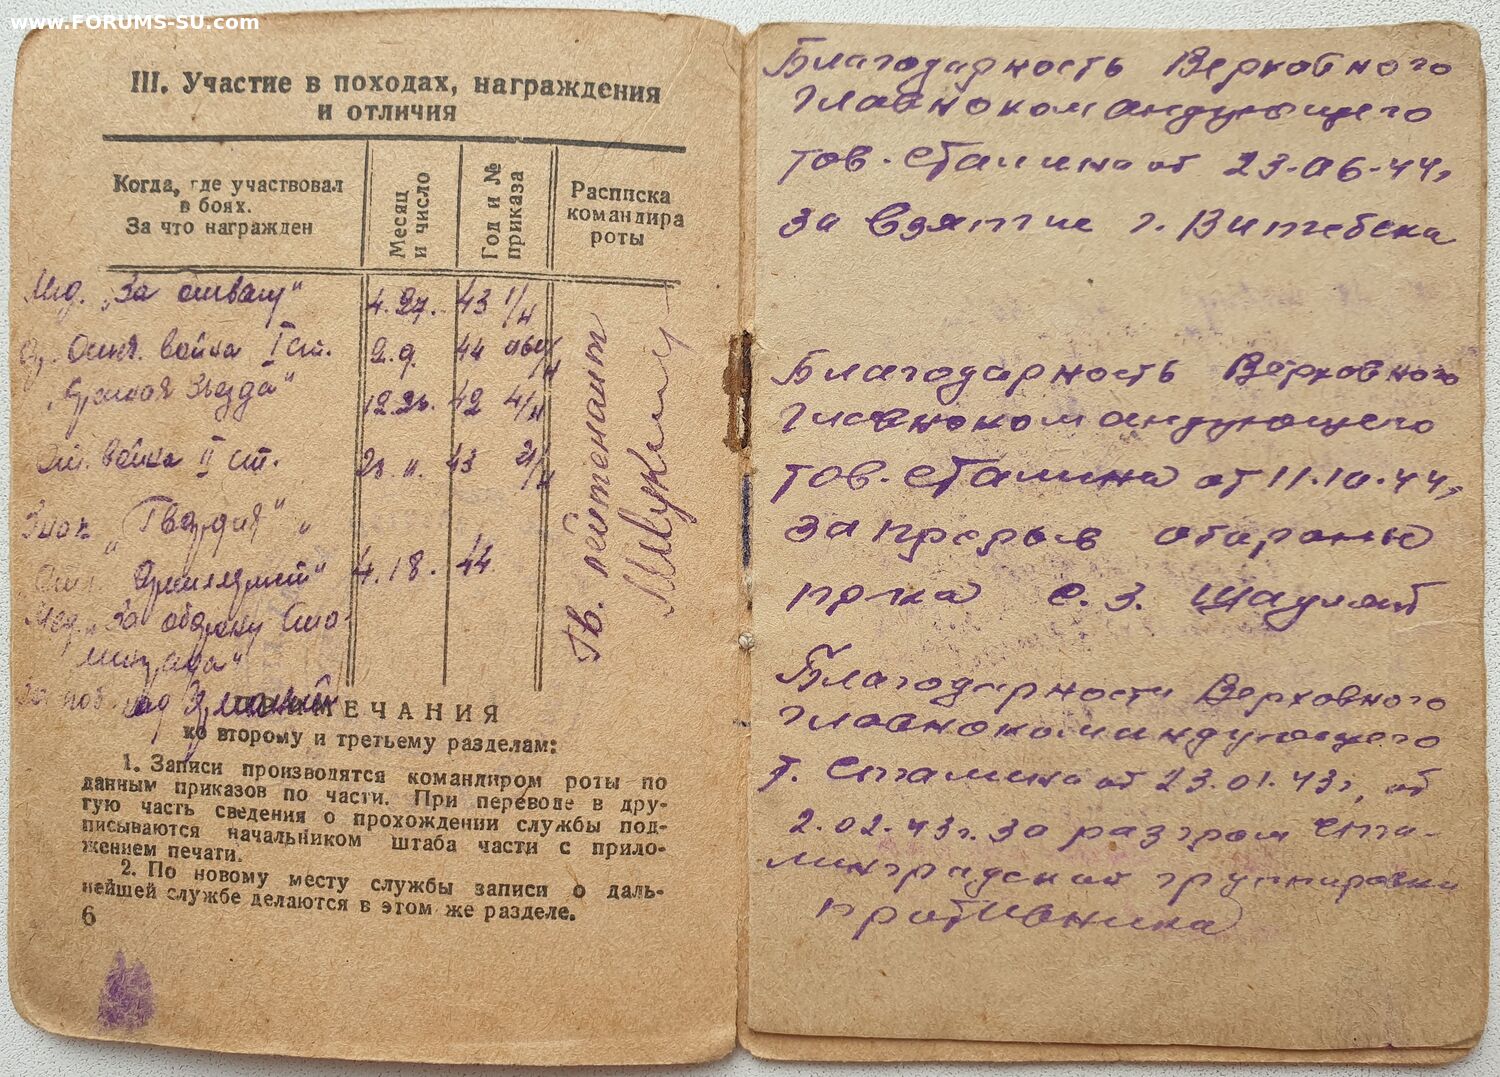 www.FORUMS-SU.com
III. Участие в походах, награждения
и отличия
Когда, где участвовал
в боях.
За что награжден
Месяц
и число
Год и №
приказа
Расписка
командира
роты
Мед. „За отвагу“ 4. 27. 43 1/н
Отеч. война I ст. 2. 9. 44
„Красная Звезда“ 12. 42 4/н
От. война II ст. 23. 11. 43 21/н
Знак „Гвардия“
„Артиллерист“ 4. 18. 44
Мед. „За оборону Ста-
линграда“
За поб. над Германией
Гв. лейтенант
ПРИМЕЧАНИЯ
ко второму и третьему разделам:
1. Записи производятся командиром роты по
данным приказов по части. При переводе в дру-
гую часть сведения о прохождении службы под-
писываются начальником штаба части с прило-
жением печати.
2. По новому месту службы записи о даль-
нейшей службе делаются в этом же разделе.
6
Благодарность Верховного
главнокомандующего
тов. Сталина от 23-06-44г
за взятие г. Витебска
Благодарность Верховного
главнокомандующего
тов. Сталина от 11.10.44г
за прорыв обороны
пр-ка с. з. Шауляй
Благодарности Верховного
главнокомандующего
т. Сталина от 23.01.43г, от
2.02.43г. за разгром Ста-
линградской группировки
противника